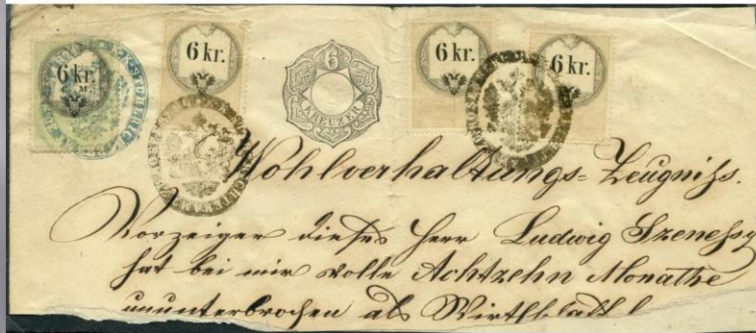 6 kr. M 6 kr. 6 KREUZER 6 kr. 6 kr.
Wohlverhaltungs-Zeugniss.
Vorzeiger dieses Herr Ludwig Szenessy
hat bei mir volle Achtzehn Monathe
ununterbrochen als